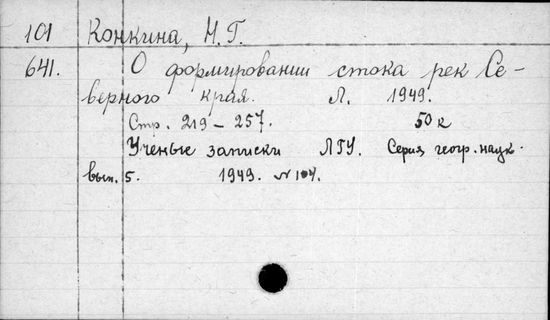 101 Конкина, Н. Г.
641. О формировании стока рек Се-
верного края. Л. 1949.
Стр. 219 – 257. 50 к
Ученые записки ЛГУ. Серия геогр. наук.
вып. 5. 1949. № 104.